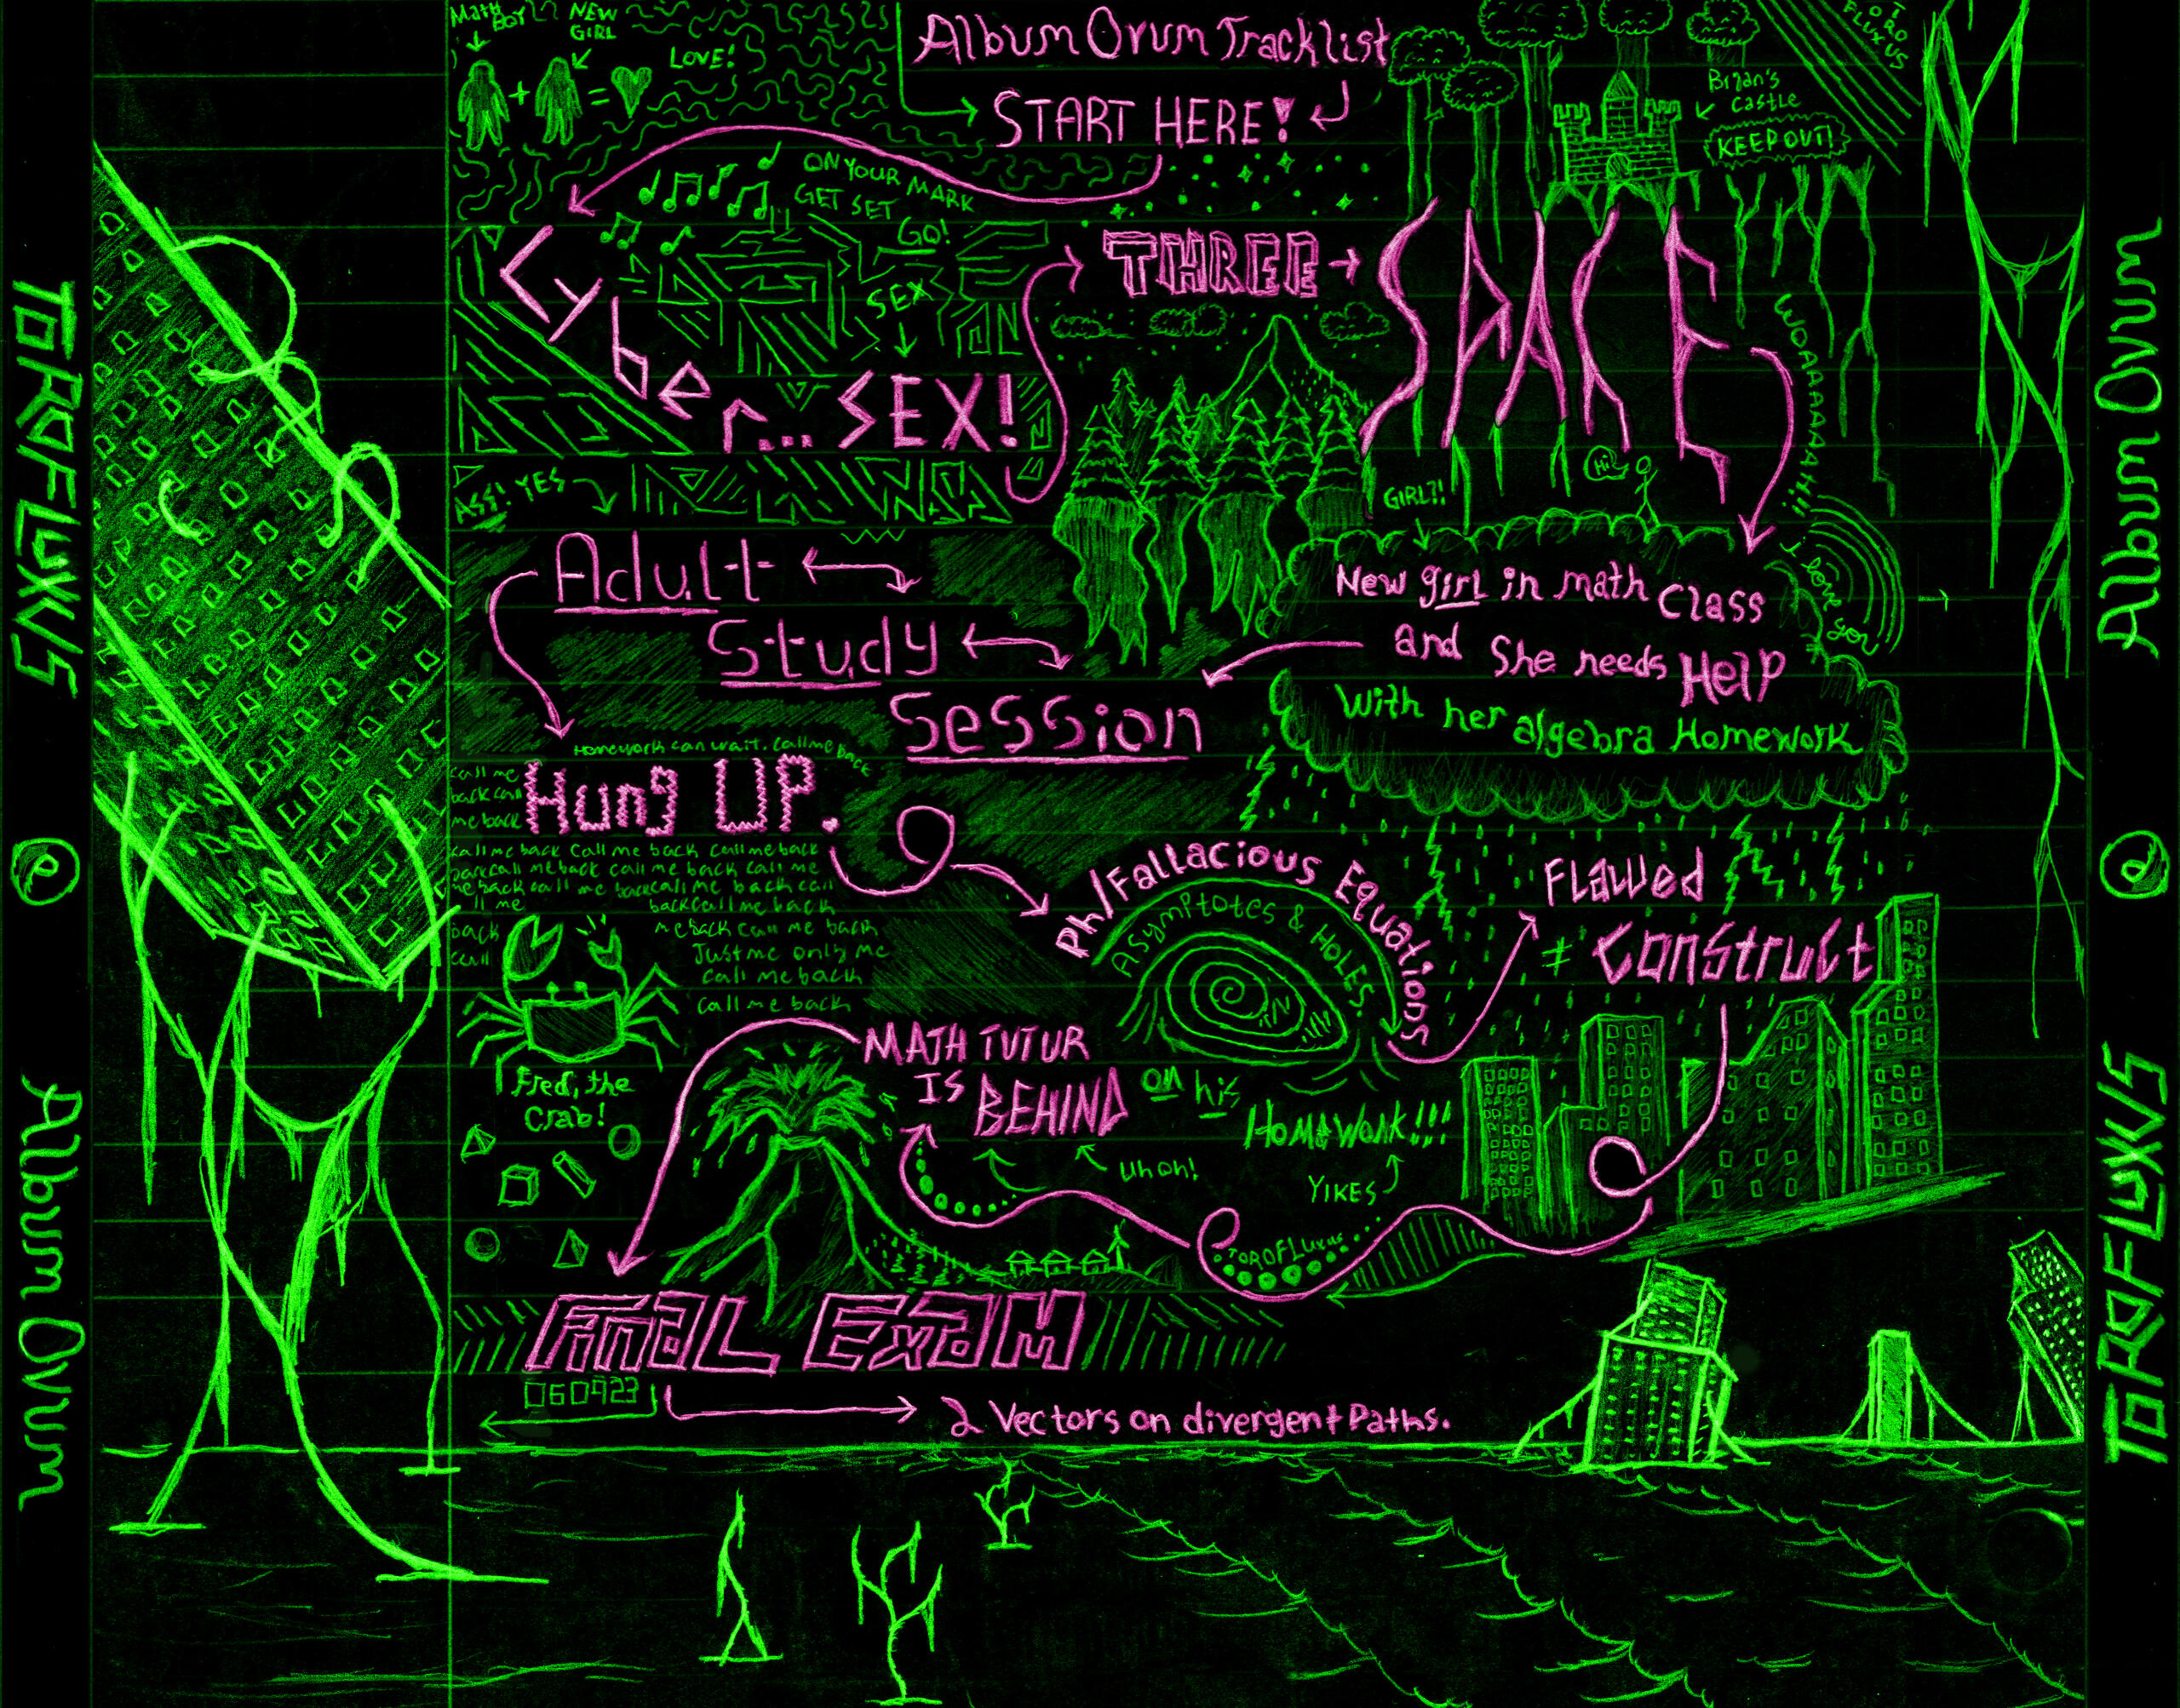 Math Boy
NEW GIRL
+ =
LOVE!
Album Ovum Tracklist
START HERE!
TOROFLUXUS
Bryan's Castle
KEEP OUT!
ON YOUR MARK
GET SET
GO!
SEX
Cyber... SEX!
ASS! YES
THREE
SPACE
WOAAAAAAAH!!
Hi!
GIRL?!
I love you
New girl in math Class
and She needs Help
With her algebra Homework
Adult
Study
Session
Homework can wait. Call me back
Hung UP.
call me
back call
me back
call me back Call me back Call me back
back call me back call me back call me
me back call me back call me back call
ll me back call me back
back me back call me back
call Just me only me
call me back
call me back
Fred, the
Crab!
Ph/Fallacious Equations
Asymptotes & HOLES
FLAWED
≠ Construct
MATH TUTUR
IS BEHIND on his
HOMEWORK!!!
uh oh!
YIKES
TOROFLUXUS
Final Exam
060923
2 Vectors on divergent Paths.
TOROFLUXUS @ Album Ovum
Album Ovum @ TOROFLUXUS